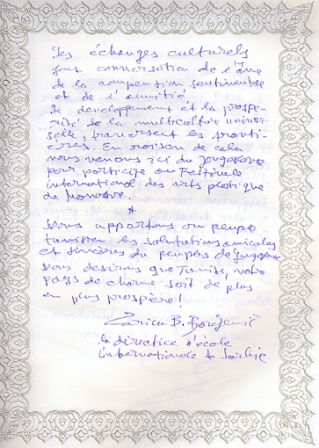 Les échanges culturels
font conversation de l'âme
de la compention sentimentale
et de l'amitié.
Le developpement et la prospe-
rité de la multiculture univer-
selle, traversent les fronti-
ères. En raison de cela
nous venons ici du Yougoslavie
pour participe au Festivale
international des arts plastique
de Monastir.
*
Nous apportons au peuple
tunisien les salutations amicales
et sincères du peuples de Yougoslavie
Nous desirons que Tunise, votre
pays de charme soit de plus
en plus prospère!
Zorica B.
la directrice d'école
internationale de Serbie